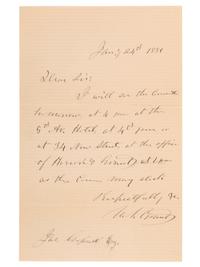 Jan'y 24th 1881
Dear Sir:
I will see the Comt
to morrow at 4 pm at the
5th Av. Hotel, at 4½ pm or
at 34 New Street, at the office
of
as the Com. may elect
Respectfully &c
U. S. Grant
Esq.